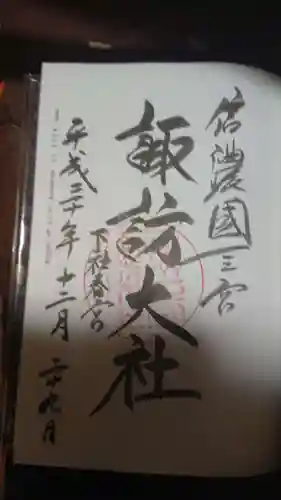 信濃國一之宮
諏訪大社
下社春宮
平成三十年十二月二十九日